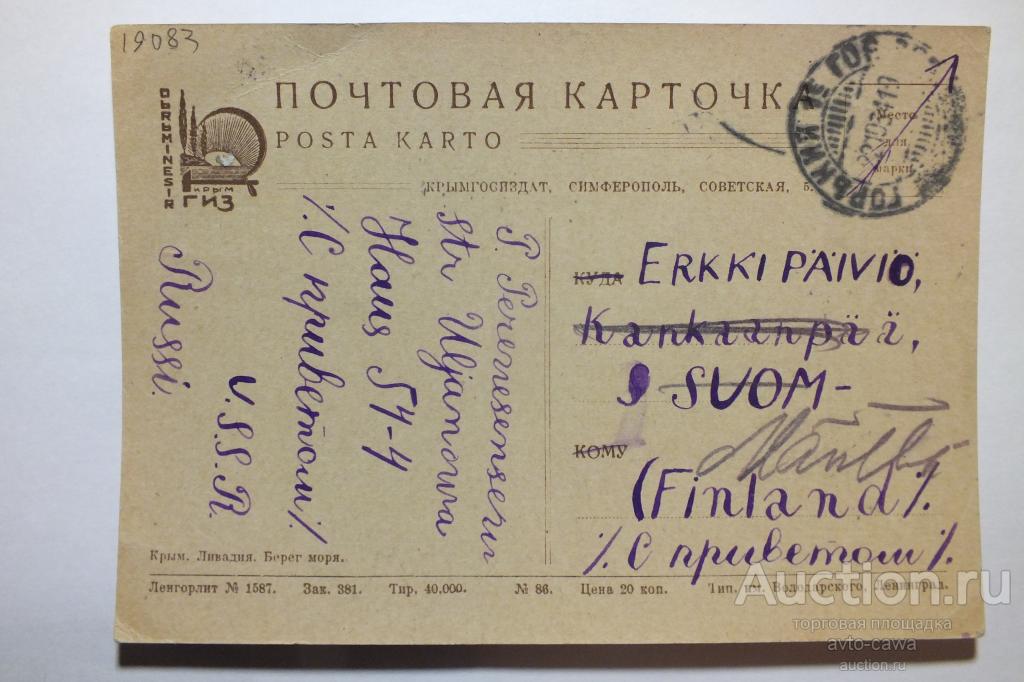 19083
ПОЧТОВАЯ КАРТОЧКА
POSTA KARTO
Место
для
марки
QЬRЬMINESIR
КРЫМ
ГИЗ
КРЫМГОСИЗДАТ, СИМФЕРОПОЛЬ, СОВЕТСКАЯ, 5.
P. Peremesenseru
Str Uljanowa
Haus 54-4
/. С приветом /.
U.S.S.R.
Russi.
КУДА
ERKKI PÄIVIÖ,
Kankaanpää,
SUOM-
КОМУ
(Finland /.
/. С приветом /.
Крым. Ливадия. Берег моря.
Ленгорлит № 1587. Зак. 381. Тир. 40.000. № 86. Цена 20 коп. Тип. им. Володарского, Ленинград.
ГОРЬКИЙ
Auction.ru
торговая площадка
avto-cawa
auction.ru